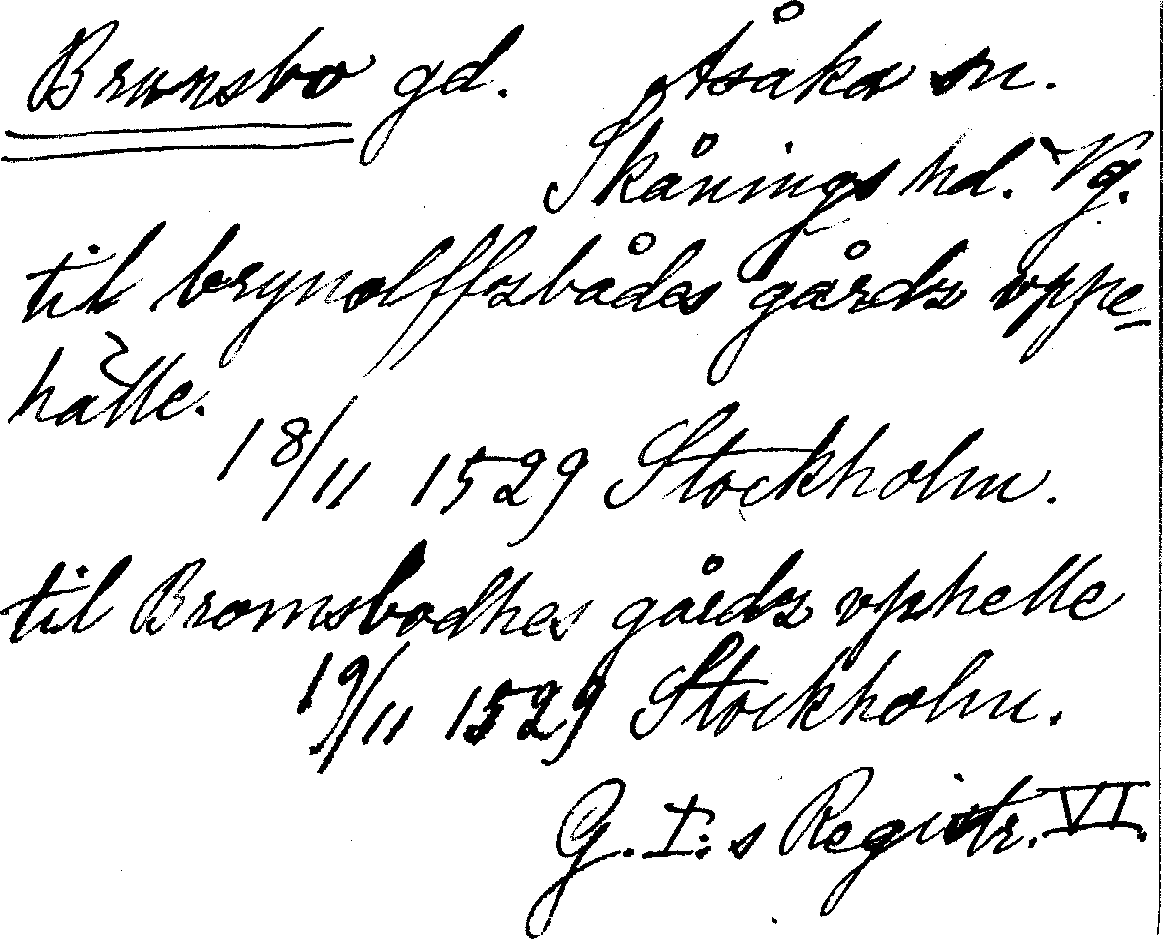 Brunsbo gd. Åsaka sn.
Skånings hd. Vg.
til brynolffzbådes gårdz vppe-
hålle.
18/11 1529 Stockholm.
til Bromsbodhes gårdz vphelle
19/11 1529 Stockholm.
G. I:s Registr. VI.